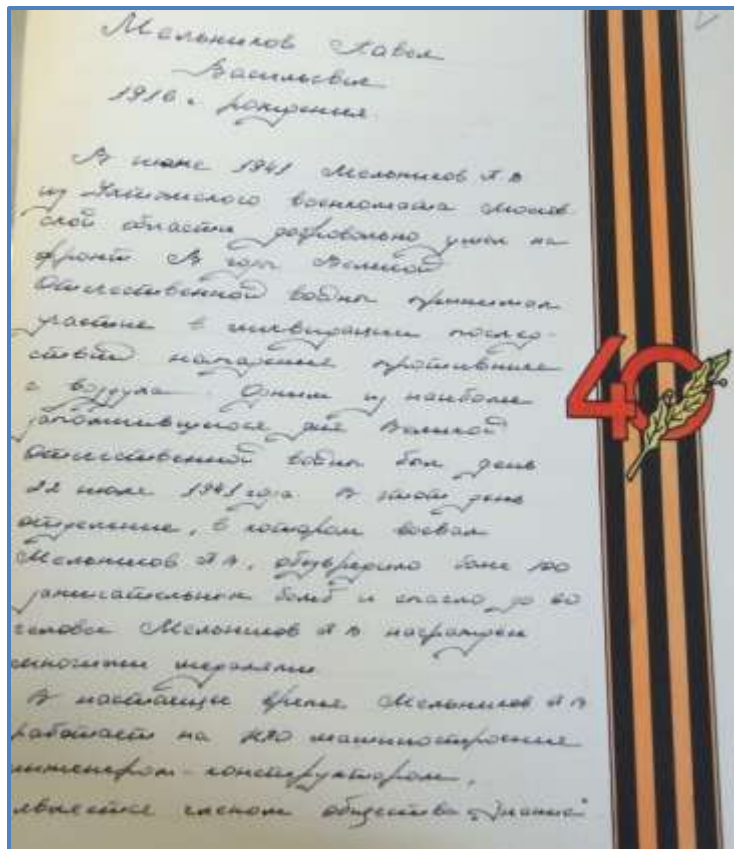 Мельников Павел
Васильевич
1916 г. рождения.
В июне 1941 Мельников П В
из Ухтомского военкомата Москов
ской области добровольно ушел на
фронт В годы Великой
Отечественной войны принимал
участие в ликвидации послед-
ствий нападения противника
с воздуха. Одним из наиболее
запомнившихся дней Великой
Отечественной войны был день
22 июля 1941 года В этот день
отделение, в котором воевал
Мельников П В, обезвредило более 100
зажигательных бомб и спасло до 60
человек Мельников П В награжден
многими медалями
В настоящее время Мельников П В
работает на НПО машиностроения
инженером-конструктором,
является членом общества „Знание"
40